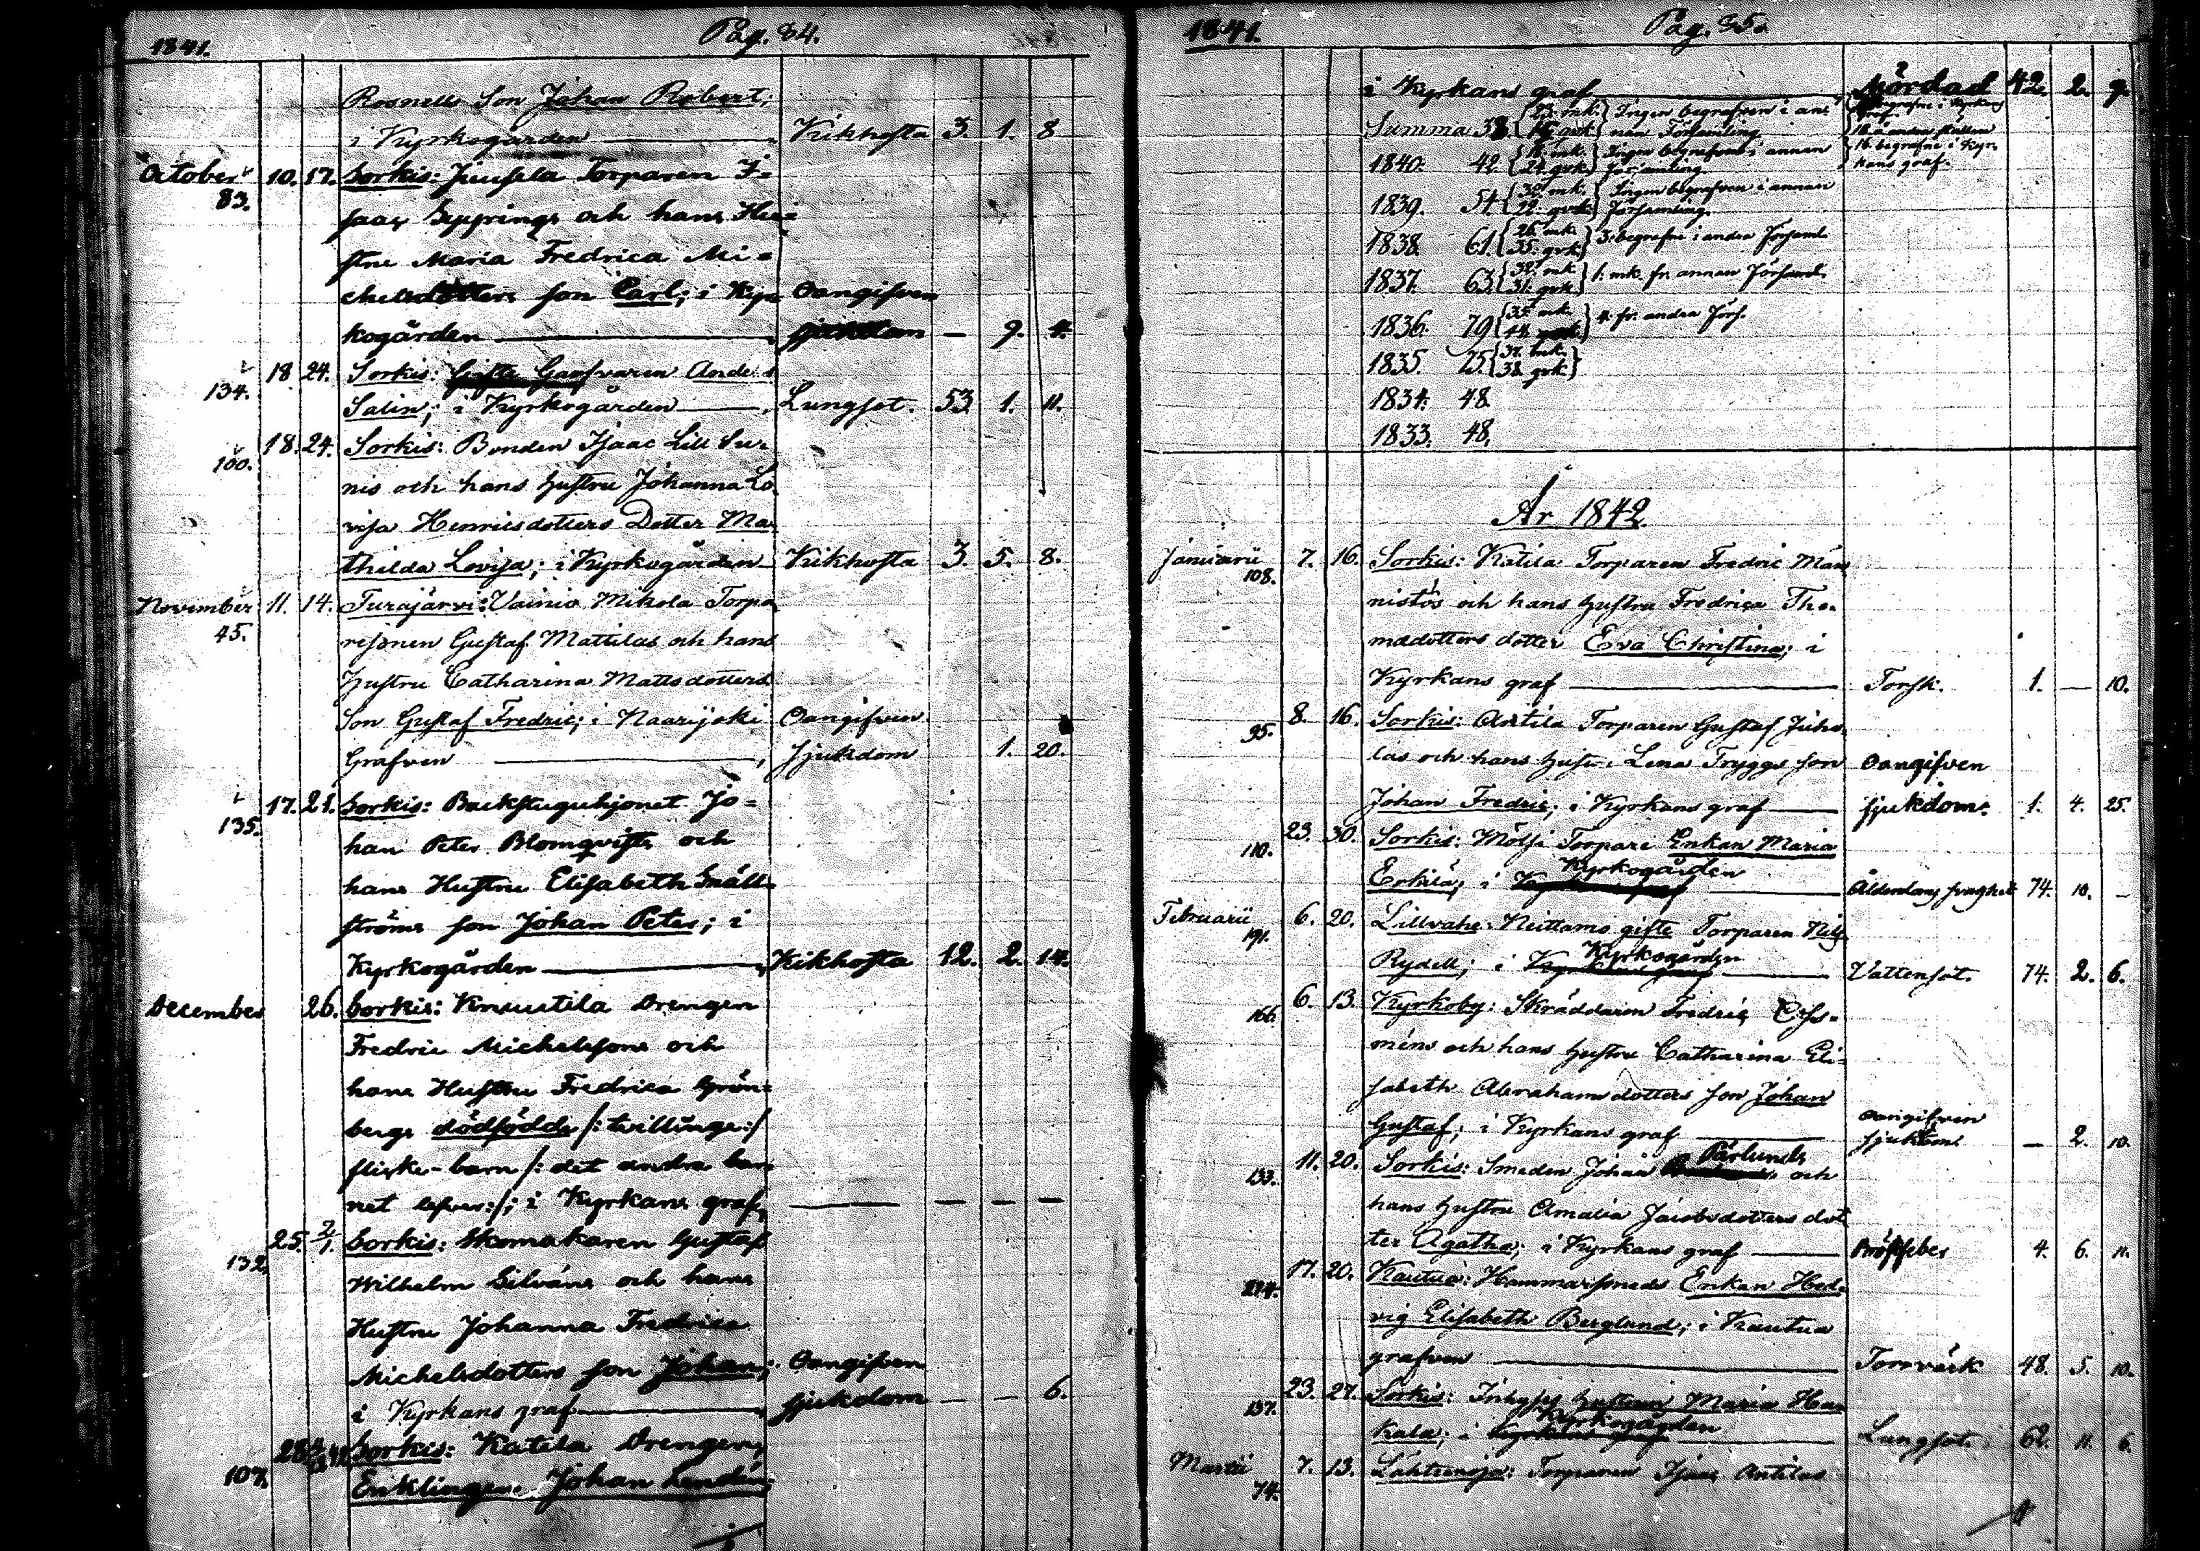 1841. Pag. 84.
Rosnells Son Johan Robert;
i Kyrkogården Kikhosta 3. 1. 8
October 10. 17. Sorkis: Juusela Torparen I-
83.
saac Sepprings och hans Hu-
stru Maria Fredrica Mi-
chelsdotters son Carl; i Kyr- Oangifven
kogården sjukdom — 9. 4.
18 24. Sorkis: Gifte Garfvaren Anders
134.
Salin; i Kyrkogården Lungsot. 53. 1. 11.
18. 24. Sorkis: Bonden Isaac Lill Sur-
100.
nis och hans Hustru Johanna Lo-
visa Henricsdotters Dotter Ma-
thilda Lovisa; i Kyrkogården Kikhosta 3. 5. 8.
November 11. 14. Turajärvi: Vainio Mikola Torpa-
45.
Gustaf Mattilas och hans
Hustru Catharina Mattsdotters
Son Gustaf Fredric; i Naarijoki Oangifven
Grafven sjukdom 1. 20.
17. 21. Sorkis: Backstuguhjonet Jo-
135.
han Peter Blomqvists och
hans Hustru Elisabeth Snäll-
ströms son Johan Peter; i
Kyrkogården Kikhosta 12. 2. 14.
December 26. Sorkis: Knuutila Drengen
Fredric Michelssons och
hans Hustru Fredrica Grön-
bergs dödfödde /: tvillinge:/
flicke-barn /: det andra bar-
net lefver:/; i Kyrkans graf, — — — —
25. 2/1. Sorkis: Skomakaren Gustaf
132.
Wilhelm Silváns och hans
Hustru Johanna Fredrica
Michelsdotters son Johan; Oangifven
i Kyrkans graf sjukdom — — 6.
28 Sorkis: Katila Drengen,
107.
Enklingen Johan Lindén;
1841. Pag. 85.
i Kyrkans graf Mördad 42. 2. 9.
Summa 38. {23. mk. 15. qvk.} Ingen begrafven i an-
nan Församling
16. begrafne i Kyr-
kans graf.
1840. 42 {18. mk. 24. qvk.} Ingen begrafven i annan
församling
1839. 54. {32. mk. 22. qvk.} Ingen begrafven i annan
Församling.
1838. 61. {26. mk. 35. qvk.} 3. begrafne i andra Församl.
1837. 63. {32. mk. 31. qvk.} 1. mk. fr. annan Församl.
1836. 79 {35. mk. 44. qvk.} 4. fr. andra Förs.
1835. 75. {37. mk. 38. qvk.}
1834. 48.
1833. 48.
År 1842.
Januarii 7. 16. Sorkis: Katila Torparen Fredric Män-
108.
nistös och hans Hustru Fredrica Tho-
masdotters dotter Eva Christina; i
Kyrkans graf Torsk. 1. — 10.
8. 16. Sorkis: Antila Torparen Gustaf Juho-
95.
las och hans Hustru Lena Tryggs son Oangifven
Johan Fredric; i Kyrkans graf sjukdom. 1. 4. 25.
23. 30. Sorkis: Mölsi Torpare Enkan Maria
110.
Kyrkogården
Erkilä; i Ålderdoms svaghet 74. 10. —
Februarii 6. 20. Lillvahe: Neittamo gifte Torparen Nils
191.
Kyrkogården
Rydell; i Vattensot. 74. 2. 6.
6. 13. Kyrkoby: Skräddaren Fredric
166.
méns och hans Hustru Catharina Eli-
sabeth Abrahamsdotters son Johan
Gustaf; i Kyrkans graf Oangifven sjukdom — 2. 10.
11. 20. Sorkis: Smeden Johan Pärlunds och
133.
hans Hustru Amalia Jacobsdotters dot-
ter Agatha; i Kyrkans graf Bröstfeber 4. 6. 11.
17. 20. Kautua: Hammarsmeds Enkan Hed-
vig Elisabeth Berglund; i Kautua
grafven Torrvärk 48. 5. 10.
23. 27. Sorkis: Inhyses Hustrun Maria Ha-
137.
Kyrkogården
kala; i Lungsot. 62. 11. 6.
Martii 7. 13. Lähteenoja: Torparen Isaac Antilas
74.